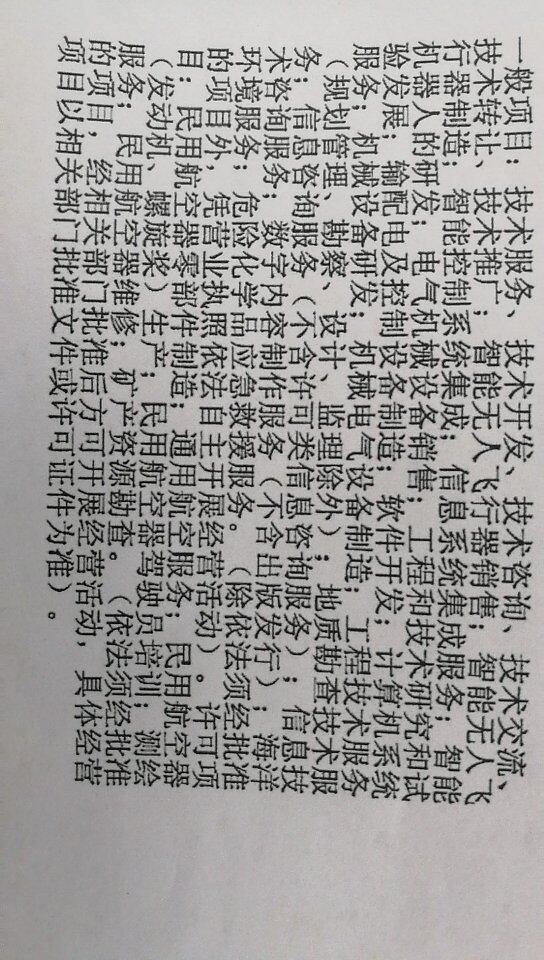 一般项目：技术服务、技术开发、技术咨询、技术交流、
技术转让、技术推广；智能无人飞行器销售；智能无人飞
行器制造；智能控制系统集成；信息系统集成服务；智能
机器人的研发；电气机械设备销售；工程和技术研究和试
验发展；输配电及控制设备制造；软件开发；计算机系统
服务；机械设备研发；机械电气设备制造；工程技术服务
（规划管理、勘察、设计、监理除外）；地质勘查技术服
务；信息咨询服务（不含许可类信息咨询服务）；信息技
术咨询服务；数字内容制作服务（不含出版发行）；海洋
环境服务；危险化学品应急救援服务。（除依法须经批准
的项目外，凭营业执照依法自主开展经营活动）。许可项
目：民用航空器零部件制造；通用航空服务；民用航空器
（发动机、螺旋桨）生产；民用航空器驾驶员培训；测绘
服务；民用航空器维修；矿产资源勘查。（依法须经批准
的项目，经相关部门批准后方可开展经营活动，具体经营
项目以相关部门批准文件或许可证件为准）。